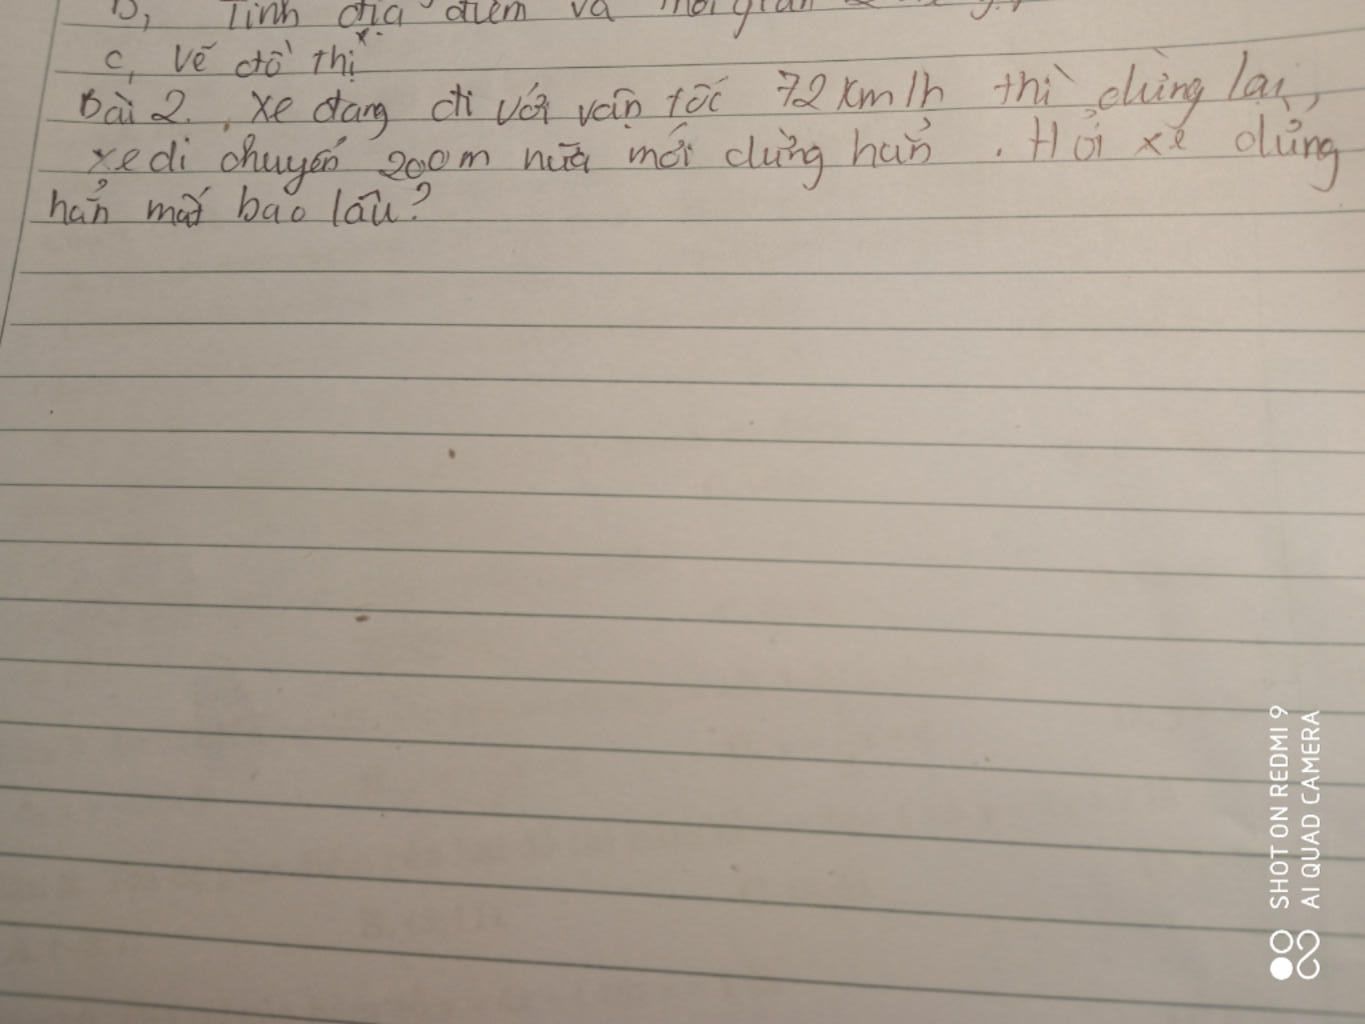 b, Tính địa điểm và
c, Vẽ đồ thị.
Bài 2. Xe đang đi với vận tốc 72 km/h thì dừng lại,
xe di chuyển 200m nữa mới dừng hẳn. Hỏi xe dừng
hẳn mất bao lâu?
SHOT ON REDMI 9
AI QUAD CAMERA